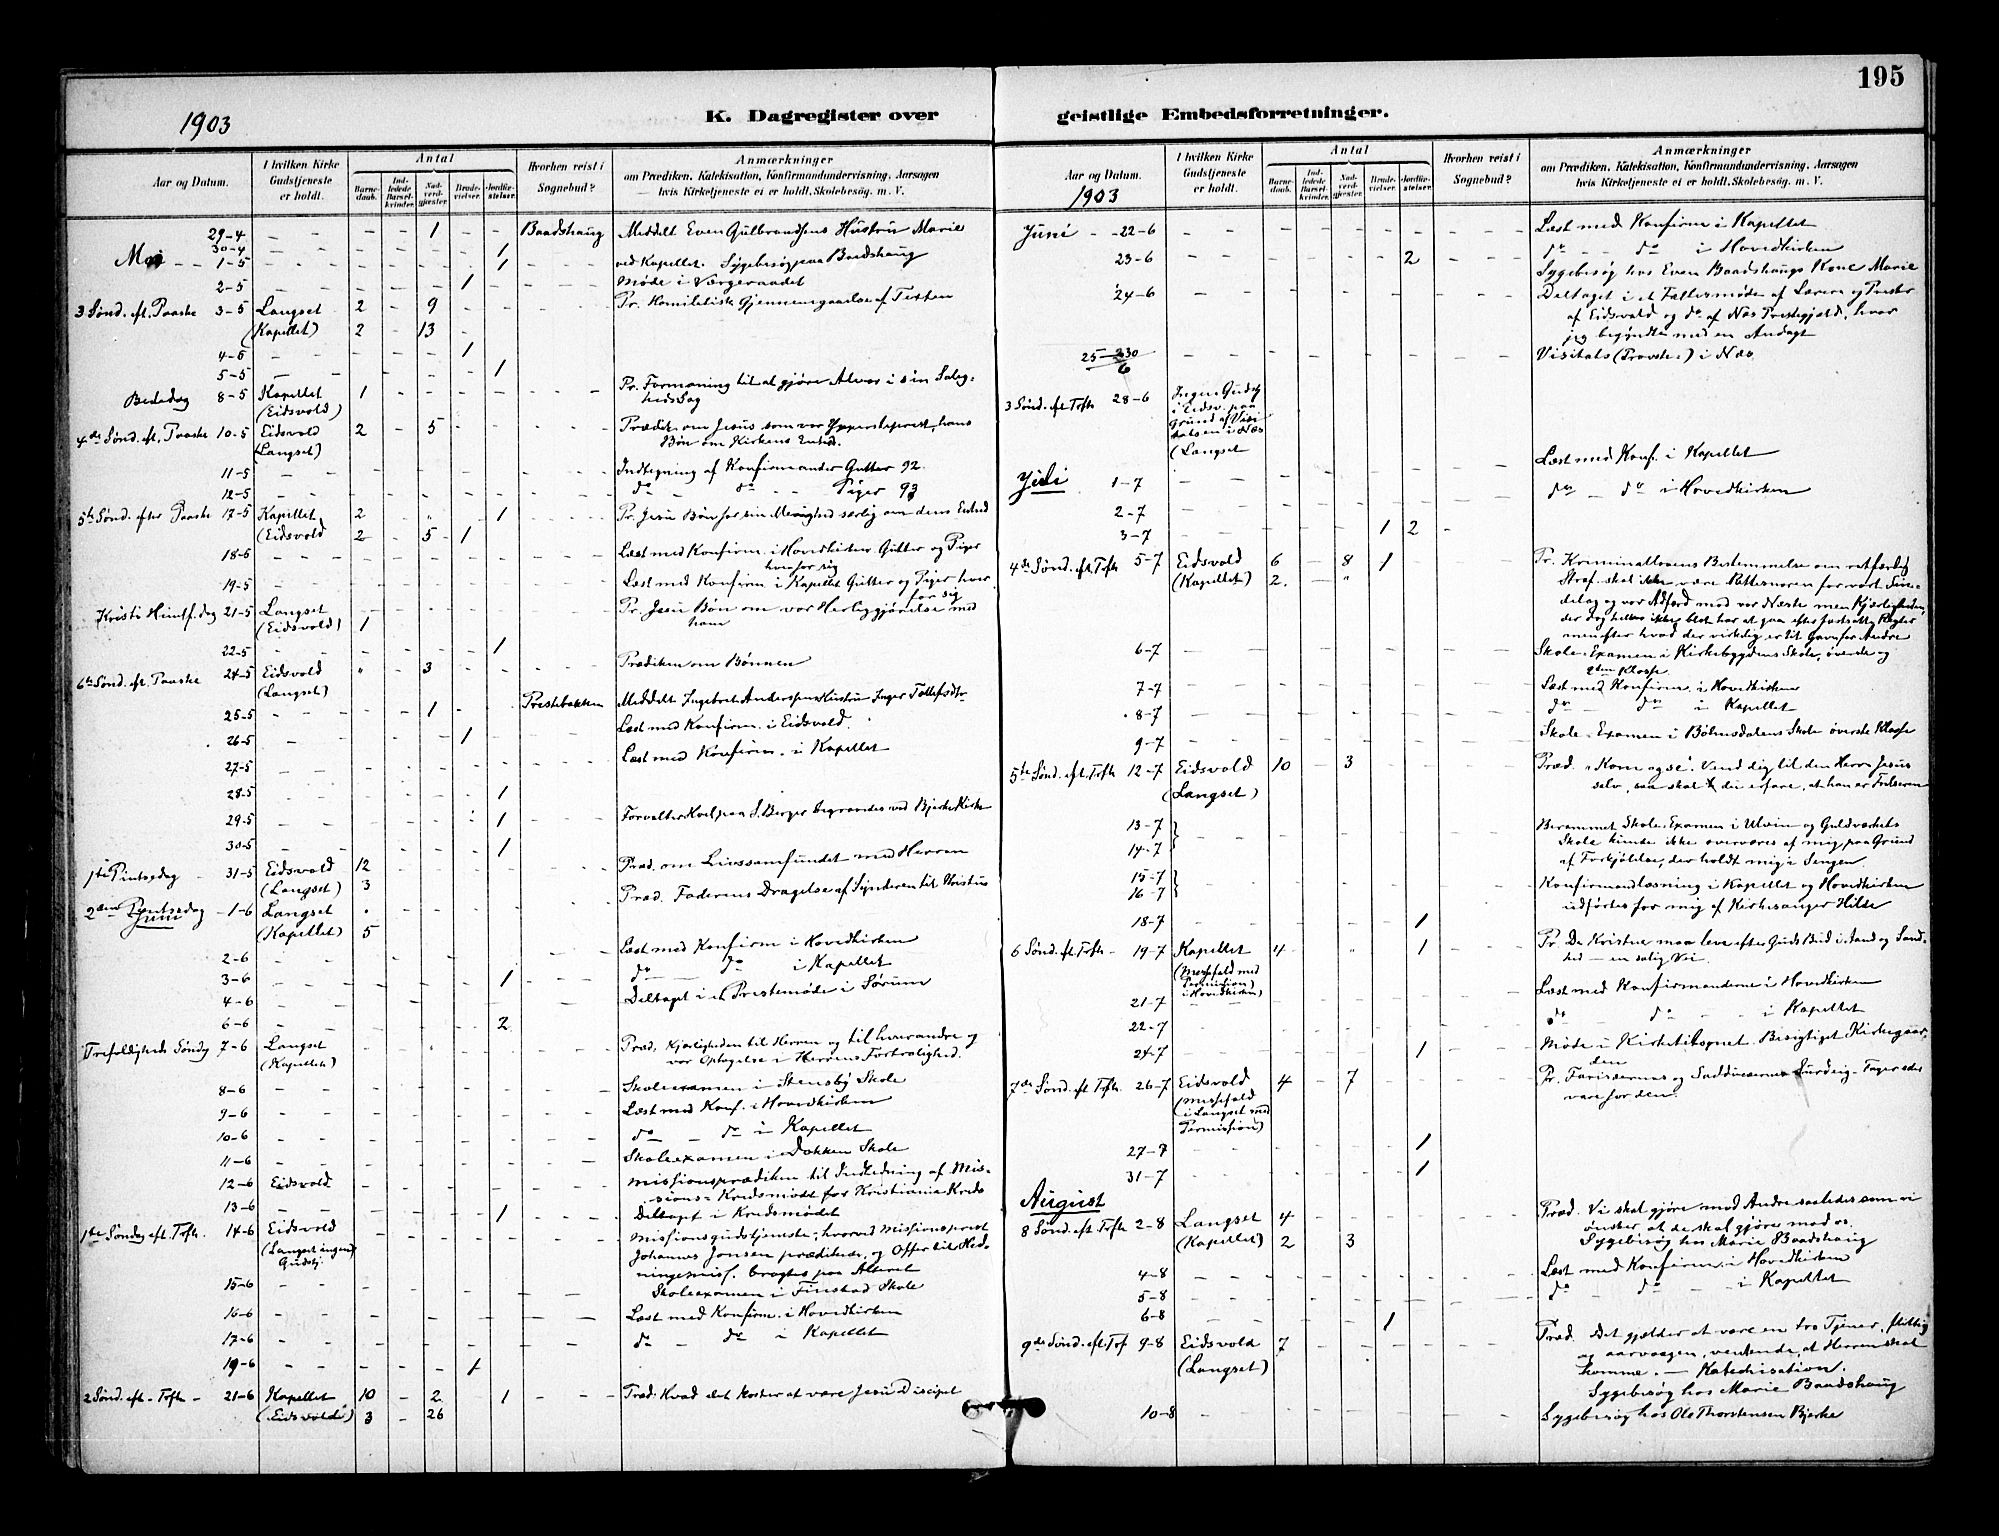 195
1903
K. Dagregister over
geistlige Embedsforretninger.
Aar og Datum.
I hvilken Kirke Gudstjeneste er holdt.
Antal
Barnedaab.
Indledede Barselkvinder.
Nadverdgjæster.
Brudevielser.
Jordfæstelser.
Hvorhen reist i Sognebud?
Anmærkninger
om Prædiken, Katekisation, Konfirmandundervisning, Aarsagen
hvis Kirketjeneste ei er holdt, Skolebesøg. m. V.
29-4 - - - - 1 - - Baadshaug Meddelt Even Gulbrandsens Hustru Marie
30-4 1
Mai 1-5 1 ved Kapellet. Sygebesøg paa Baadshaug
2-5 1 Møde i Værgeraadet
3 Sønd. eft. Paaske 3-5 Langset 2 - 9 Pr. Homiletisk Gjennemgaaelse af Texten
(Kapellet) 2 - 13
4-5 1
5-5 1
Bededag 8-5 Kapellet 1 Pr. Formaning til at gjøre Alvor i sin Salig-
(Eidsvold) heds Sag
4de Sønd. eft. Paaske 10-5 Eidsvold 2 - 5 Prædik. om Jesus som vor Ypperstepræst, hans
(Langset) Bøn om Kirkens Enhed.
11-5 Indtegning af Konfirmander Gutter 92.
12-5 do - do - Piger 93
5te Sønd. efter Paaske 17-5 Kapellet 2 1 Pr. Jesu Bøn for sin Menighed særlig om dens Enhed
(Eidsvold 2 - 5 - 1
18-5 Læst med Konfirm. i Hovedkirken Gutter og Piger
hver for sig
19-5 Læst med Konfirm i Kapellet Gutter og Piger hver
for sig
Kristi Himlf.dag 21-5 Langset Pr. Jesu Bøn om vor Herliggjørelse med
(Eidsvold) 1 ham
22-5 1
6te Sønd. eft. Paaske 24-5 Eidsvold " - 3 Prædiken om Bønnen
(Langset)
25-5 1 Prestebakken Meddelt Ingebret Andersens Hustru Inger Tollefsdtr
26-5 1 Læst med Konfirm. i Eidsvold
27-5 Læst med Konfirm. i Kapellet
28-5 1
29-5 1 Forvalter S. Berger begravedes ved Bjerke Kirke
30-5 1
1ste Pintsedag 31-5 Eidsvold 12 Præd. om Livssamfundet med Herren
(Langset) 3
2den Pintsedag 1-6 Langset . Præd. Faderens Dragelse af Synderen til Kristus
Juni (Kapellet) 5
2-6 Læst med Konfirm i Hovedkirken
3-6 1 do - do i Kapellet
4-6 Deltaget i et Prestemøde i Sørum
6-6 2
Trefoldigheds Søndg 7-6 Langset Præd. Kjærligheden til Herren og til hverandre og
(Kapellet) vor Optagelse i Herrens Fortrolighed.
8-6 Skoleexamen i Stensby Skole
9-6 Læst med Konf. i Hovedkirken
10-6 do - do i Kapellet
11-6 Skoleexamen i Dokken Skole
12-6 Eidsvold Missionsprædiken til Indledning af Mis-
sions-Kredsmødet for Kristiania Kreds
13-6 1 Deltaget i Kredsmødet
1ste Søndag eft. Trefh. 14-6 Eidsvold Missionsgudstjeneste, hvorved Missionsprest
(Langset ingen Johannes Jonsen prædikede, og Offer til Hed-
Gudstj. ningemiss. bragtes paa Alteret
15-6 Skoleexamen i Finstad Skole
16-6 Læst med Konfirm. i Hovedkirken
17-6 do - do i Kapellet
19-6 1
2 Sønd. eft. Trefh 21-6 Kapellet 10 - 2 - 1 Præd. Hvad det koster at være Jesu Discipel
(Eidsvold) 3 - 26
Aar og Datum.
1903
I hvilken Kirke Gudstjeneste er holdt.
Antal
Barnedaab.
Indledede Barselkvinder.
Nadverdgjæster.
Brudevielser.
Jordfæstelser.
Hvorhen reist i Sognebud?
Anmærkninger
om Prædiken, Katekisation, Konfirmandundervisning, Aarsagen
hvis Kirketjeneste ei er holdt, Skolebesøg. m. V.
Juni 22-6 Læst med Konfirm i Kapellet
do - do i Hovedkirken
23-6 2 Sygebesøg hos Even Baadshaugs Kone Marie
24-6 Deltaget i et Fællesmøde af Lærere og Prester
af Eidsvold og do af Næs Prestegjæld, hvor
jeg begyndte med en Andagt
25-30/6 Visitats (Provstens) i Næs
3 Sønd. eft Trefh 28-6 Ingen Gudstj
i Eidsv. paa
Grund af Visi-
tatsen i Næs
(Langset
Læst med Konf. i Kapellet
Juli 1-7 do - do i Hovedkirken
2-7
3-7 1 2
4de Sønd. eft. Trefh 5-7 Eidsvold 6 - 8 1 Pr. Kriminallovens Bestemmelse om retfærdig
(Kapellet) 2. - " Straf skal ikke være Rettesnoren for vort Sin-
delag og vor Adfærd mod vor Næste men Kjærligheden,
der dog heller ikke blot har at gaa efter fastsatte Regler
men efter hvad der virkelig er til Gavn for Andre
6-7 Skole-Examen i Kirkebygdens Skole, øverste og
2den Klasse
7-7 Læst med Konfirm. i Hovedkirken
8-7 do - do i Kapellet
9-7 Skole-Examen i Bøhnsdalens Skole øverste Klasse
5te Sønd. eft. Trefh 12-7 Eidsvold 10 - 3 Præd. "Kom og se". Vend dig til den Herre Jesus
(Langset) selv, saa skal du erfare, at han er Frelseren
13-7 Berammet Skole-Examen i Ulvin og Guldværkets
14-7 Skole kunde ikke overværes af mig, paa Grund
af Forkjølelse, der holdt mig i Sengen.
15-7 Konfirmandlæsning i Kapellet og Hovedkirken
16-7 udførtes for mig af Kirkesanger Hilse
18-7 1
6 Sønd. eft. Trefh - 19-7 Kapellet 4 - " 1 Pr. De Kristne maa leve efter Guds Bud i Aand og Sand-
(Messefald med hed - en salig Vei.
Permission)
i Hovedkirken)
21-7 Læst med Konfirmanderne i Hovedkirken
22-7 do do - - i Kapellet
24-7 1 Møde i Kirketilsynet. Besigtiget Kirkegaar-
den
7de Sønd. eft Trefh. 26-7 Eidsvold 4 - 7 Pr. Farisæernes og Sadducæernes Surdeig - Tager eder
(Messefald vare for den.
i Langset med
Permission)
27-7 1
31-7 1
August
8 Sønd. eft Trefh 2-8 Langset 4 Præd. Vi skal gjøre mod Andre saaledes som vi
(Kapellet) 2 3 ønsker, at de skal gjøre mod os.
Sygebesøg hos Marie Baadshaug
4-8 Læst med Konfirm. i Hovedkirken
5-8 do - do - i Kapellet
6-8 1
9de Sønd. eft Tref 9-8 Eidsvold 7 Præd. Det gjælder at være en tro Tjener, flittig
(Langset) og aarvaagen, ventende, at Herren skal
komme. - Katechisation.
Sygebesøg hos Marie Baadshaug
10-8 Sygebesøg hos Ole Thorstensen Bjerke